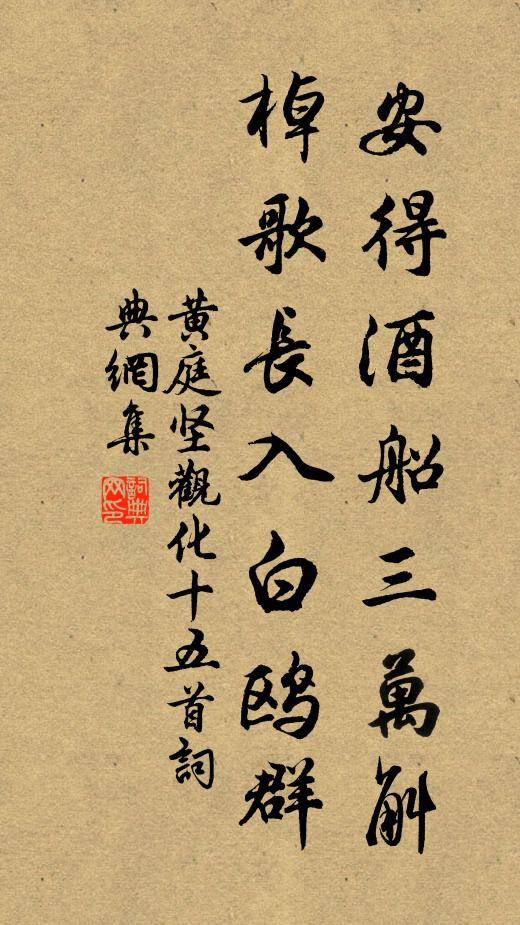 安得酒船三萬斛
棹歌長入白鸥群
黄庭坚觀化十五首詞
典網集
詞典
网印